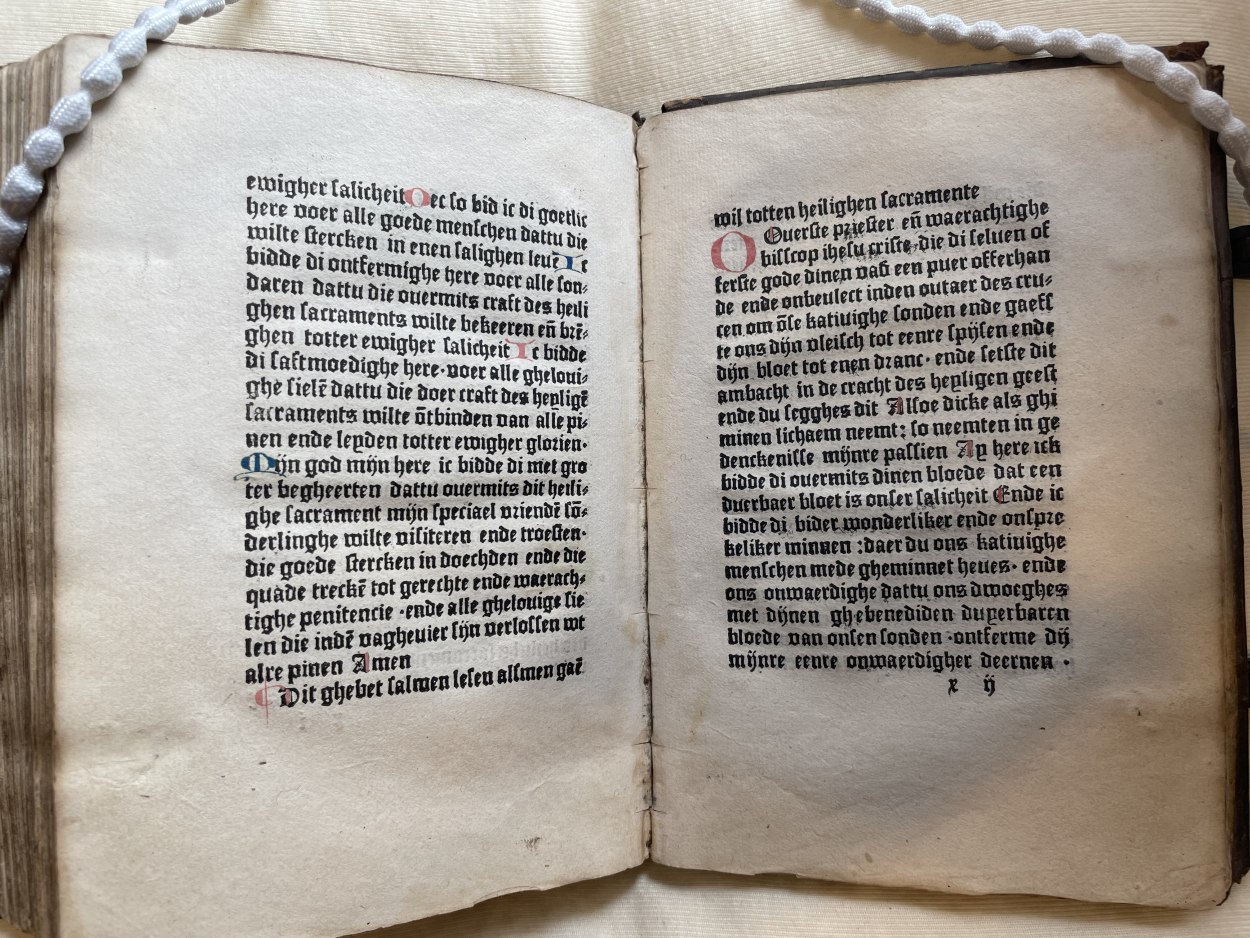 ewigher salicheit Oec so bid ic di goetlic
here voer alle goede menschen dattu die
wilste stercken in enen salighen leuē Ic
bidde di ontfermighe here voer alle son-
daren dattu die ouermits craft des heili
ghen sacraments wilte bekeeren eñ brē-
ghen totter ewigher salicheit Ic bidde
di saftmoedighe here·voer alle gheloui-
ghe sielē dattu die doer craft des heyligē
sacraments wilte ōtbinden van alle pi-
nen ende leyden totter ewigher glorien·
Mijn god mijn here ic bidde di met gro
ter begheerten dattu ouermits dit heili-
ghe sacrament mijn speciael vriendē sō-
derlinghe wilte visiteren ende troesten·
die goede stercken in doechden ende die
quade treckē tot gerechte ende waerach-
tighe penitencie ·ende alle ghelouige sie
len die indē vagheuier sijn verlossen wt
alre pinen Amen
Dit ghebet salmen lesen alsmen gaē
wil totten heilighen sacramente
OOuerste priester eñ waerachtighe
bisscop ihesu criste, die di seluen of
ferste gode dinen vað een puer offerhan
de ende onbeulect inden outaer des cru-
cen om ōse katiuighe sonden ende gaefs
te ons dijn vleisch tot eenre spijsen ende
dijn bloet tot enen dranc· ende setste dit
ambacht in de cracht des heyligen geest
ende du segghes dit Alsoe dicke als ghi
minen lichaem neemt: so neemten in ge
denckenisse mijnre passien Ay here ick
bidde di ouermits dinen bloede dat een
duerbaer bloet is onser salicheit Ende ic
bidde di bider wonderliker ende onspre
keliker minnen :daer du ons katiuighe
menschen mede gheminnet heues· ende
ons onwaerdighe dattu ons dwoeghes
met dijnen ghebenediden duyerbaren
bloede van onsen sonden ·ontferme dij
mijnre eenre onwaerdigher deernen ·
x ij